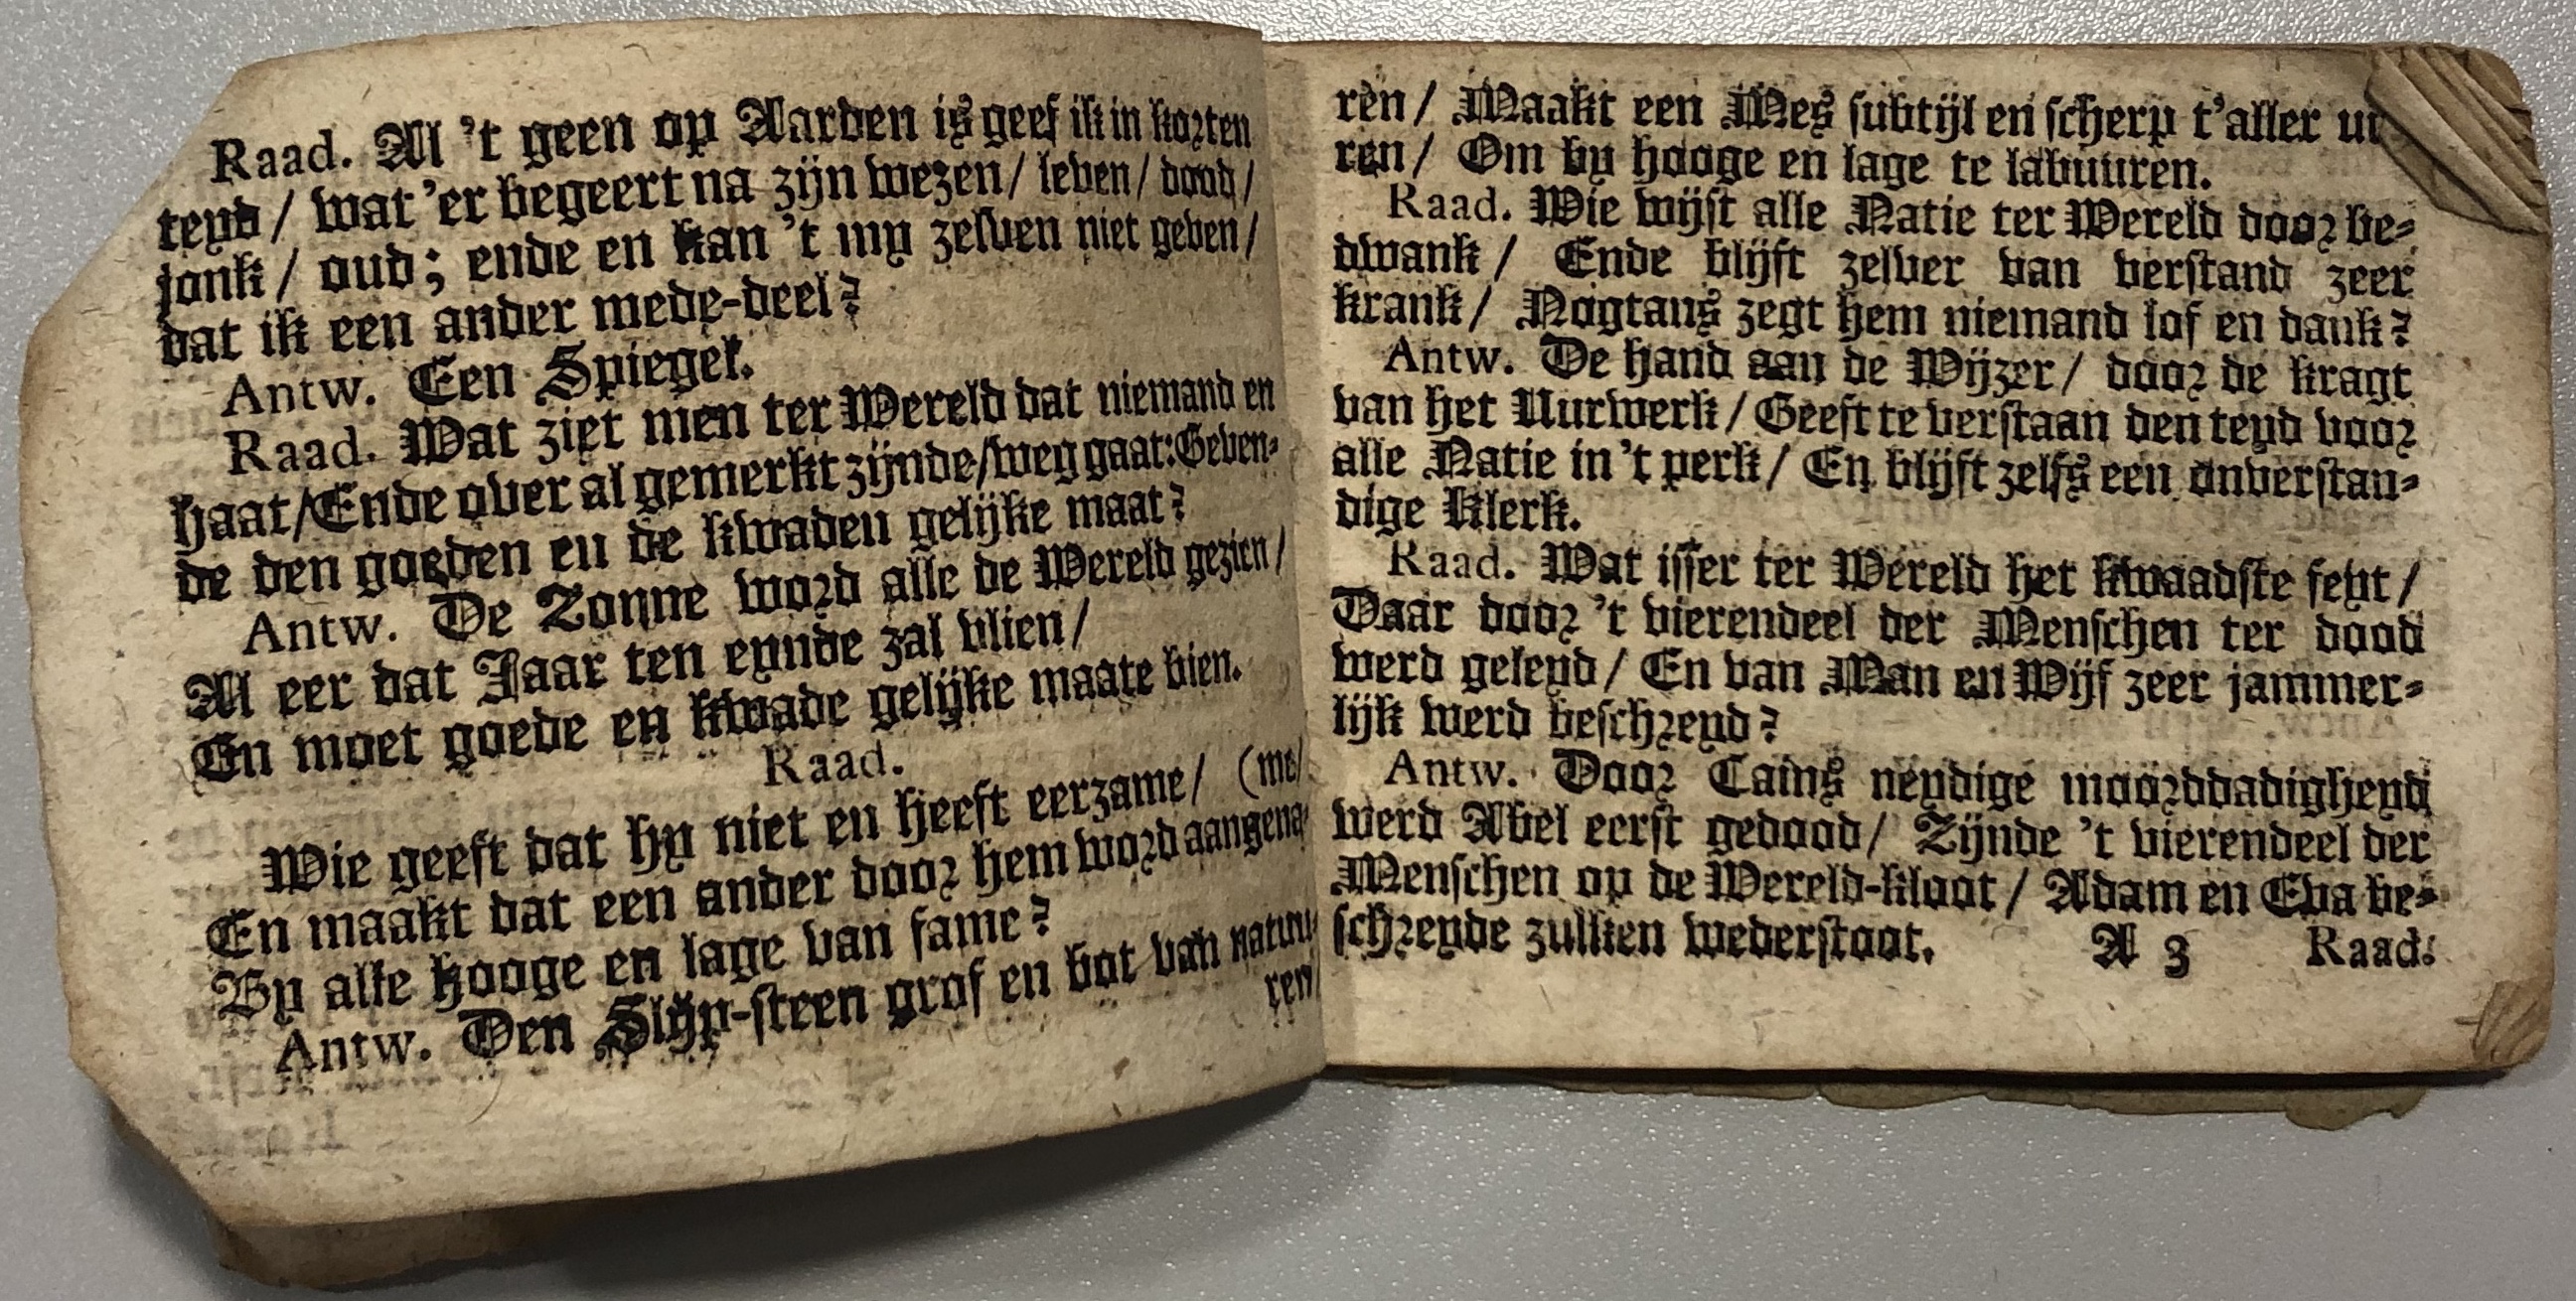 Raad. Al 't geen op Aarden is geef ik in korten
teyd / wat 'er begeert na zijn wezen / leven / dood /
jonk / oud ; ende en kan 't my zelven niet geven /
dat ik een ander mede-deel?
Antw. Een Spiegel.
Raad. Wat ziet men ter Wereld dat niemand en
haat / Ende over al gemerkt zijnde / weg gaat: Geven-
de den goeden en de kwaden gelijke maat?
Antw. De Zonne word alle de Wereld gezien /
Al eer dat Jaar ten eynde zal vlien /
En moet goede en kwade gelijke maate bien.
Raad.
Wie geeft dat hy niet en heeft eerzame / (me /
En maakt dat een ander door hem word aangena-
By alle hooge en lage van fame?
Antw. Den Slijp-steen grof en bot van natuu-
ren /
ren / Maakt een Mes subtijl en scherp t'aller uu-
ren / Om by hooge en lage te labuuren.
Raad. Wie wijst alle Natie ter Wereld door be-
dwank / Ende blijft zelver van verstand zeer
krank / Nogtans zegt hem niemand lof en dank?
Antw. De hand aan de Wijzer / door de kragt
van het Uurwerk / Geeft te verstaan den teyd voor
alle Natie in 't perk / En blijft zelfs een onverstan-
dige Klerk.
Raad. Wat isser ter Wereld het kwaadste feyt /
Daar door 't vierendeel der Menschen ter dood
werd geleyd / En van Man en Wijf zeer jammer-
lijk werd beschreyd?
Antw. Door Cains neydige moorddadigheyd
werd Abel eerst gedood / Zijnde 't vierendeel der
Menschen op de Wereld-kloot / Adam en Eva be-
schreyde zulken wederstoot. A 3 Raad.